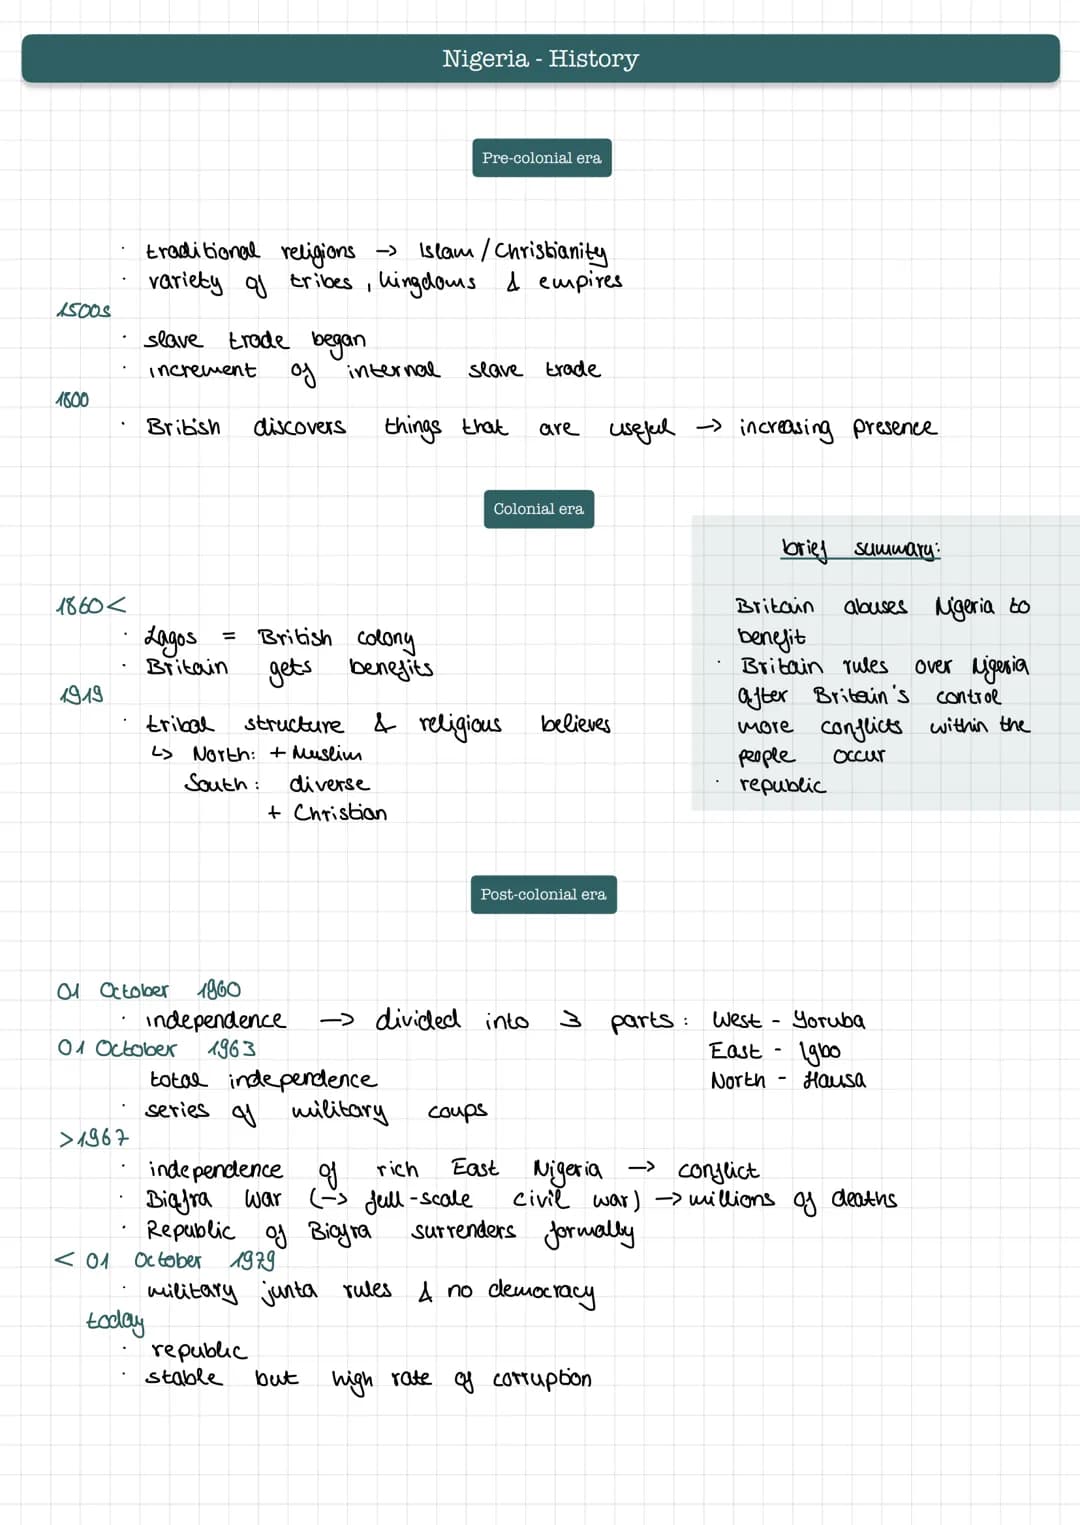 Nigeria - History
Pre-colonial era
· traditional religions -> Islam / Christianity
· variety of tribes, kingdoms & empires
1500s
· slave trade began
· increment of internal slave trade
1800
· British discovers things that are useful -> increasing presence
Colonial era
brief summary:
Britain abuses Nigeria to
benefit
· Britain rules over Nigeria
after Britain's control
more conflicts within the
people occur
· republic
1860<
· Lagos = British colony
· Britain gets benefits
1919
· tribal structure & religious believes
↳ North: + Muslim
South: diverse
+ Christian
Post-colonial era
01 October 1960
· independence -> divided into 3 parts: West - Yoruba
East - Igbo
North - Hausa
01 October 1963
total independence
· series of military coups
>1967
· independence of rich East Nigeria -> conflict
· Biafra War (-> full-scale civil war) -> millions of deaths
· Republic of Biafra surrenders formally
< 01 October 1979
· military junta rules & no democracy
today
· republic
· stable but high rate of corruption